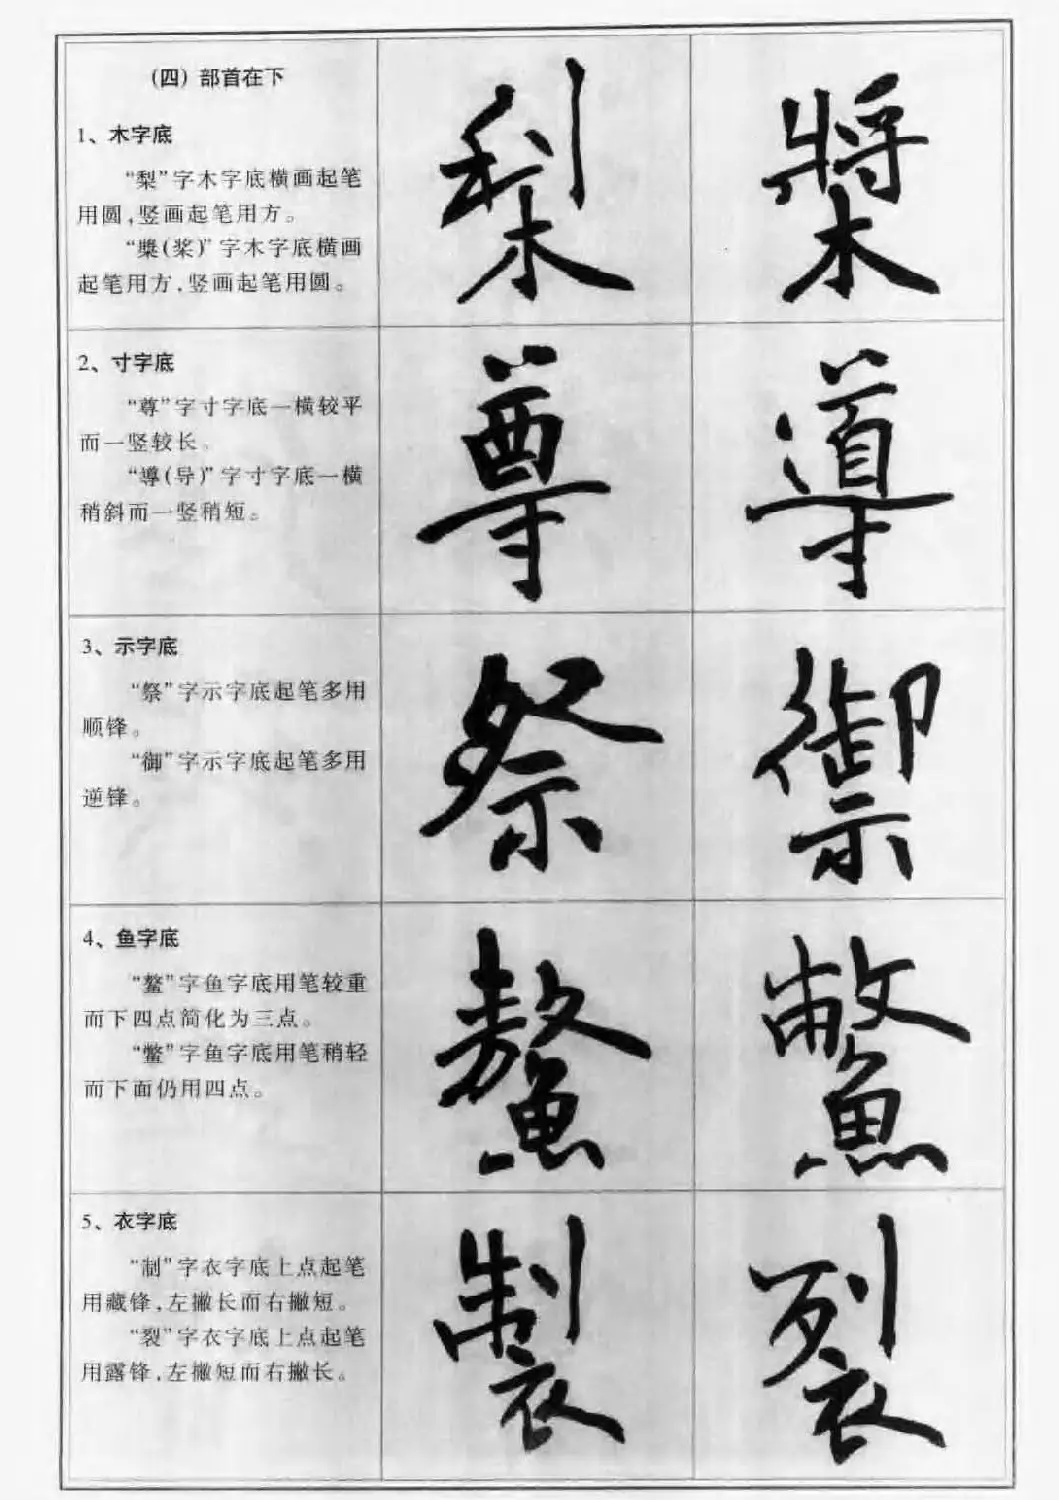 （四）部首在下
1、木字底
“梨”字木字底横画起笔
用圆，竖画起笔用方。
“槳（桨）”字木字底横画
起笔用方，竖画起笔用圆。
梨 槳
2、寸字底
“尊”字寸字底一横较平
而一竖较长。
“導（导）”字寸字底一横
稍斜而一竖稍短。
尊 導
3、示字底
“祭”字示字底起笔多用
顺锋。
“御”字示字底起笔多用
逆锋。
祭 禦
4、鱼字底
“鳌”字鱼字底用笔较重
而下四点简化为三点。
“鳖”字鱼字底用笔稍轻
而下面仍用四点。
鰲 鱉
5、衣字底
“制”字衣字底上点起笔
用藏锋，左撇长而右撇短。
“裂”字衣字底上点起笔
用露锋，左撇短而右撇长。
製 裂